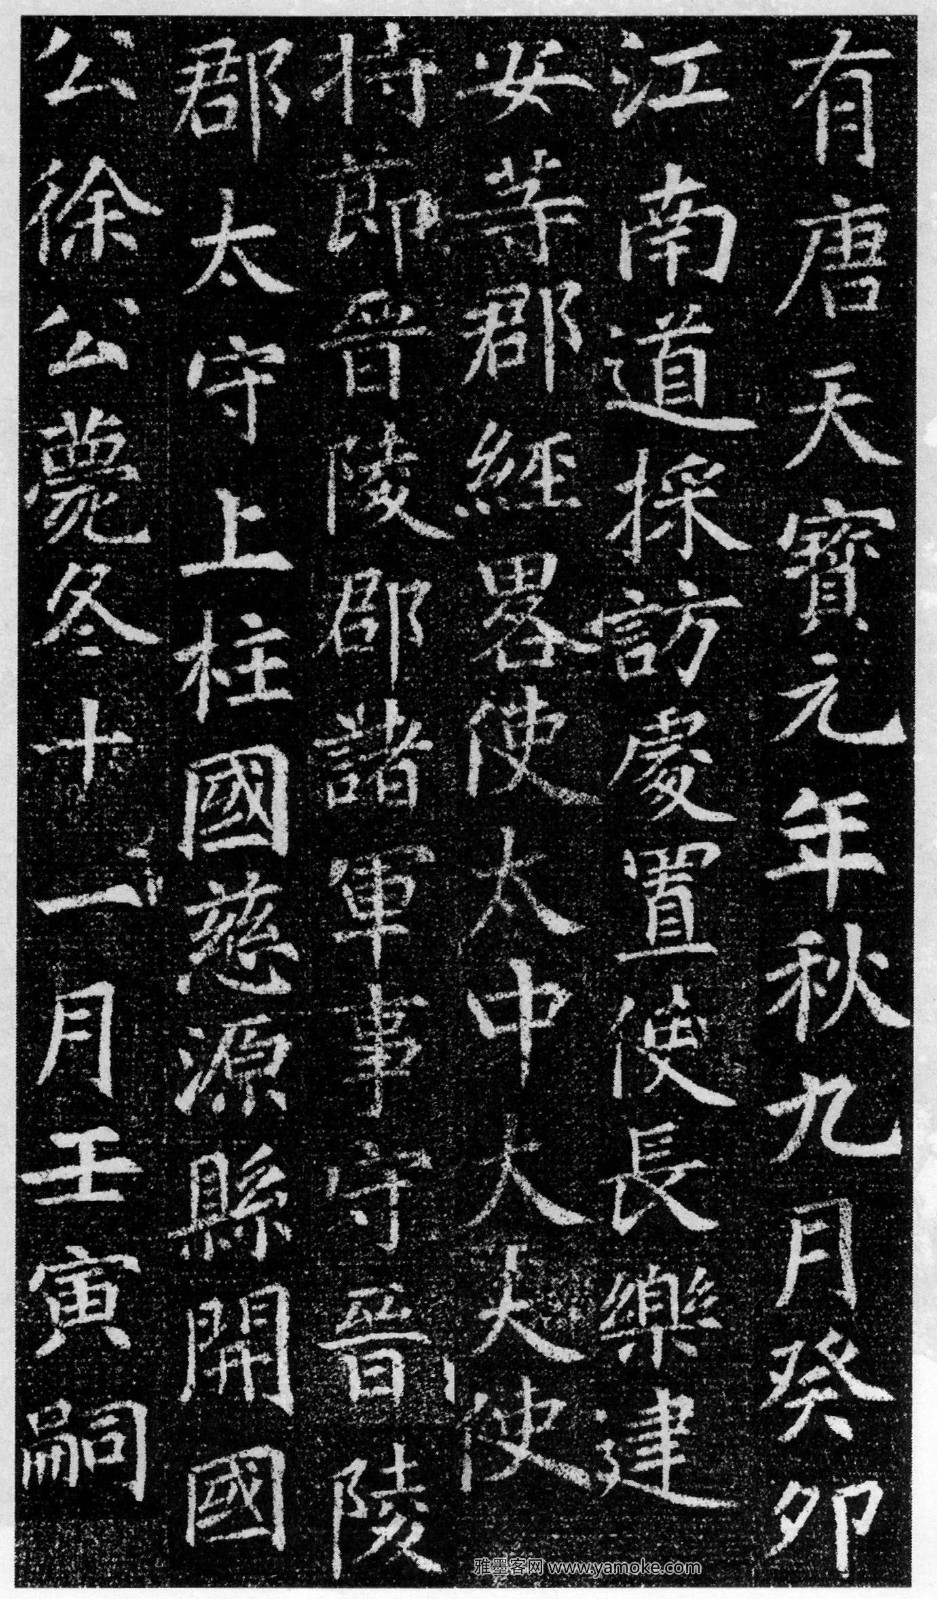 有唐天寶元年秋九月癸卯
江南道採訪處置使長樂建
安等郡經畧使太中大夫使
持節晉陵郡諸軍事守晉陵
郡太守上柱國慈源縣開國
公徐公薨冬十一月壬寅嗣
雅墨客网 www.yamoke.com